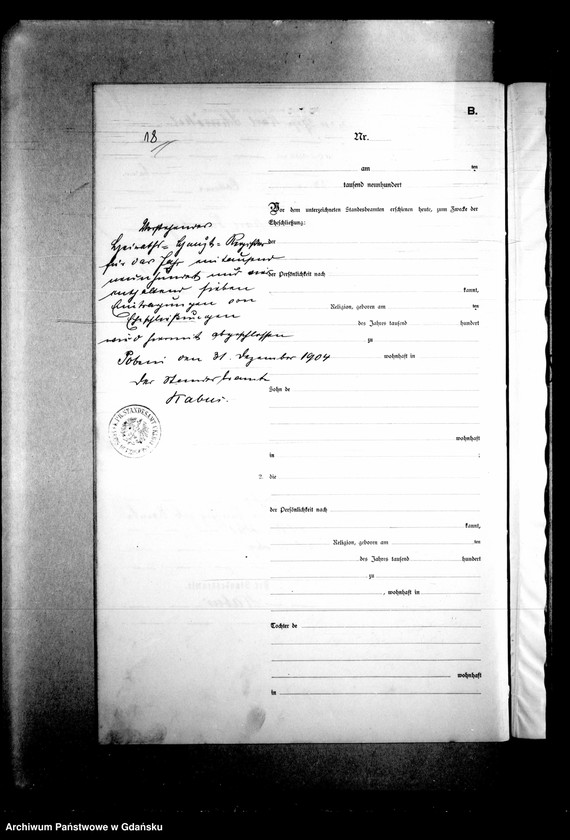 B.
18
Nr.
am ten
tausend neunhundert
Vor dem unterzeichneten Standesbeamten erschienen heute, zum Zwecke der
Eheschließung:
der
der Persönlichkeit nach
kannt,
Religion, geboren am ten
des Jahres tausend hundert
zu
wohnhaft in
Sohn de
wohnhaft
in ;
2. die
der Persönlichkeit nach
kannt,
Religion, geboren am ten
des Jahres tausend hundert
zu
, wohnhaft in
Tochter de
wohnhaft
in
Vorstehendes
Heiraths-Haupt-Register
für das Jahr eintausend
neunhundert und vier
enthaltend sieben
Eintragungen von
Eheschließungen
wird hiermit abgeschlossen
den 31. Dezember 1904
Der Standesbeamte
Archiwum Państwowe w Gdańsku